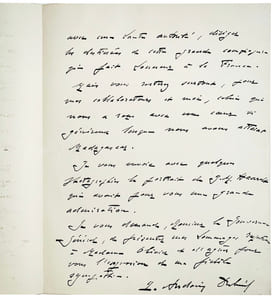 avec une haute autorité, diriger
les destinées de cette grande compagnie
qui fait honneur à la France.
Mais vous restez surtout, pour
mes collaborateurs et moi, celui qui
nous a reçu avec un cœur si
généreux lorsque nous avons atteint
Madagascar.
Je vous envoie avec quelques
photographies le portrait de G.M. Haardt
qui avait pour vous une grande
admiration.
Je vous demande, Monsieur le Gouverneur
Général, de présenter mes hommages
à Madame Olivier et d'agréer pour
vous l'expression de ma fidèle
sympathie.
L. Audouin Dubreuil